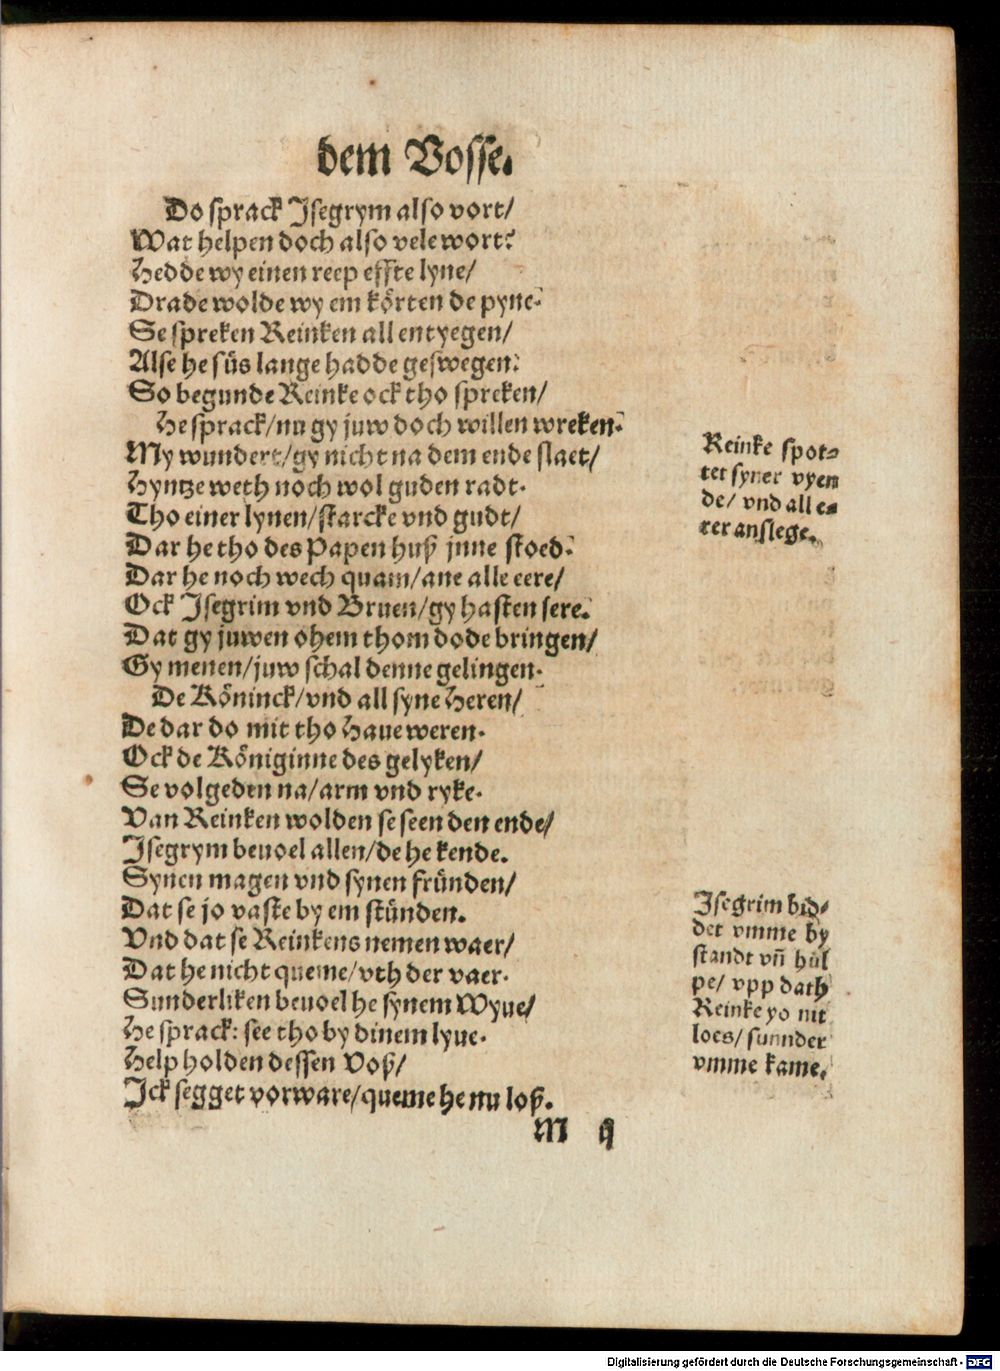 dem Vosse.
Do sprack Jsegrym also vort/
Wat helpen doch also vele wort?
Hedde wy einen reep effte lyne/
Drade wolde wy em körten de pyne.
Se spreken Reinken all entyegen/
Alse he süs lange hadde geswegen.
So begunde Reinke ock tho spreken/
He sprack/nu gy juw doch willen wreken.
My wundert/gy nicht na dem ende slaet/
Hyntze weth noch wol guden radt.
Tho einer lynen/starcke vnd gudt/
Dar he tho des Papen huß jnne stoed.
Dar he noch wech quam/ane alle eere/
Ock Jsegrim vnd Bruen/gy hasten sere.
Dat gy juwen ohem thom dode bringen/
Gy menen/juw schal denne gelingen.
De Köninck/vnd all syne Heren/
De dar do mit tho Haue weren.
Ock de Königinne des gelyken/
Se volgeden na/arm vnd ryke.
Van Reinken wolden se seen den ende/
Jsegrym beuoel allen/de he kende.
Synen magen vnd synen fründen/
Dat se jo vaste by em stünden.
Vnd dat se Reinkens nemen waer/
Dat he nicht queme/vth der vaer.
Sunderliken beuoel he synem Wyue/
He sprack: see tho by dinem lyue.
Help holden dessen Voß/
Jck segget vorware/queme he nu loß.
M ij
Reinke spot⸗
tet syner vyen
de/ vnd all e⸗
rer anslege.
Jsegrim bid⸗
det vmme by
standt vn̄ hül
pe/ vpp dath
Reinke yo nit
loes/ sunnder
vmme kame.
Digitalisierung gefördert durch die Deutsche Forschungsgemeinschaft - DFG